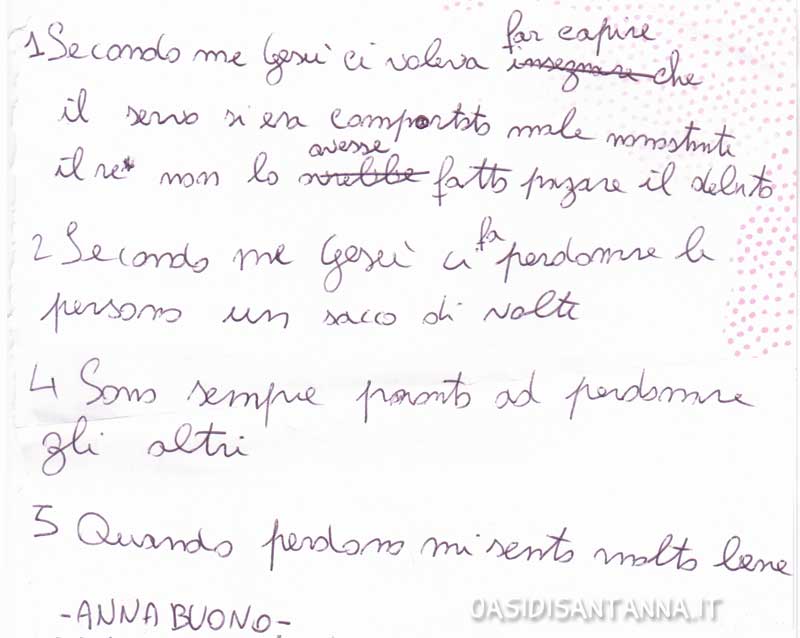 1 Secondo me Gesù ci voleva far capire ~~insegnare~~ che
il servo si era comportato male nonostante
il re non lo ~~avrebbe~~ avesse fatto pagare il debito
2 Secondo me Gesù ci fa perdonare le
persone un sacco di volte
4 Sono sempre pronto ad perdonare
gli altri
5 Quando perdono mi sento molto bene
-ANNA BUONO-
OASIDISANTANNA.IT